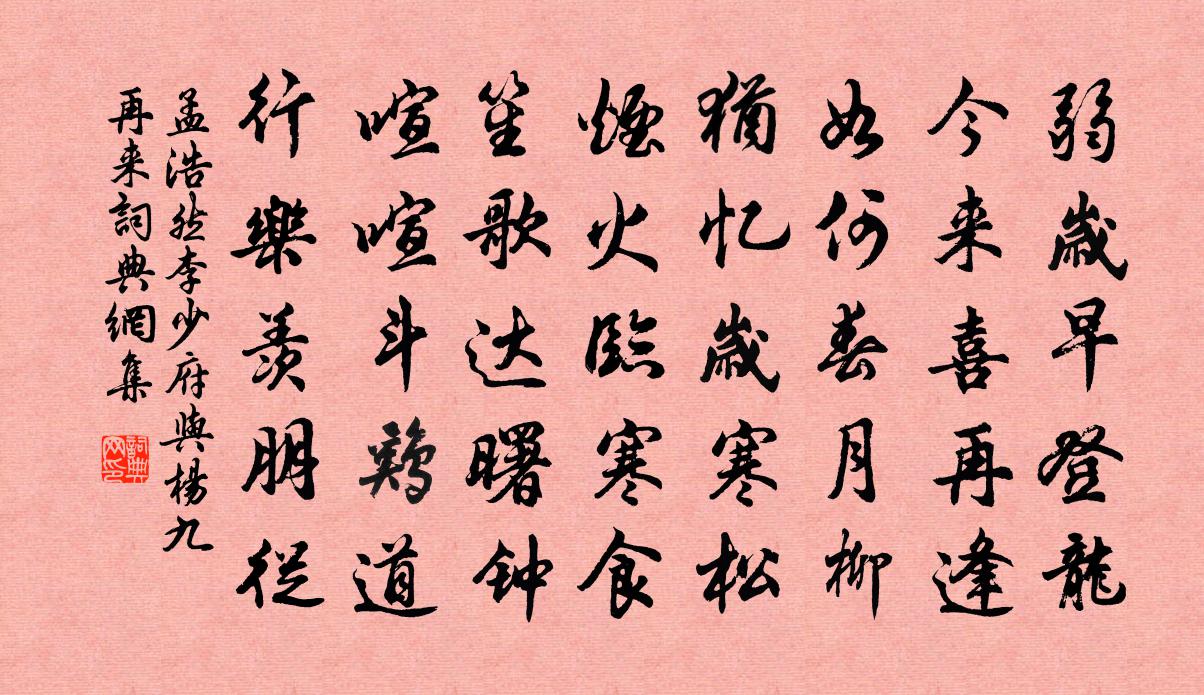 弱歲早登龍
今来喜再逢
如何春月柳
猶忆歲寒松
煙火臨寒食
笙歌达曙钟
喧喧斗鷄道
行樂羡朋從
孟浩然李少府與楊九
再来詞典網集
詞典网印